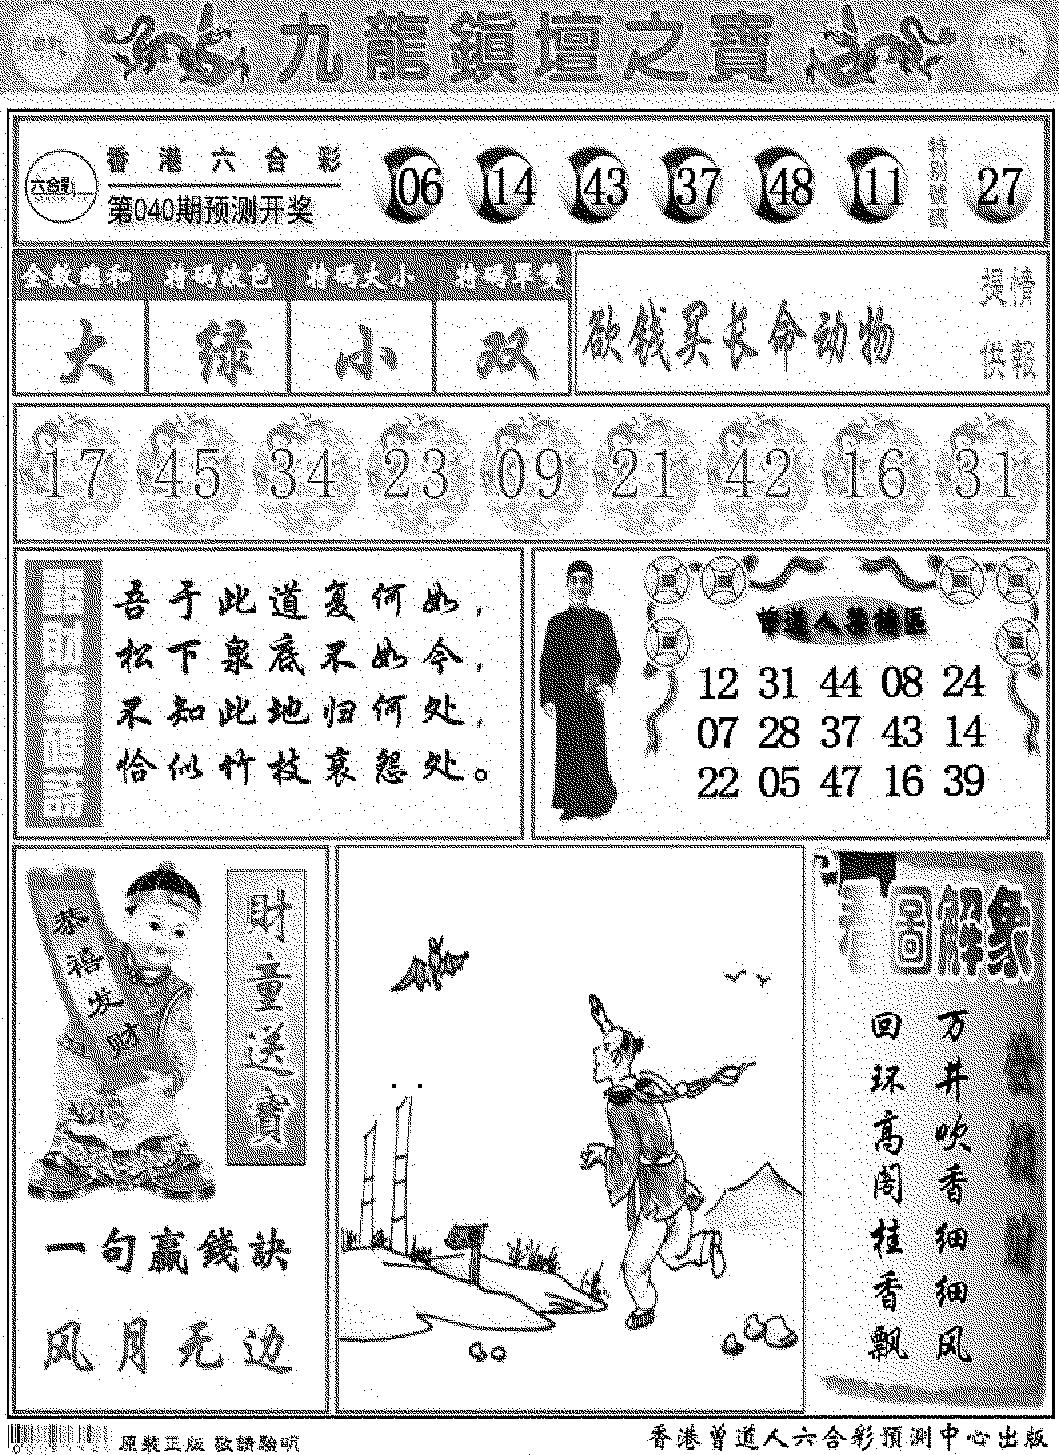 九龍鎮壇之寶
香港六合彩
六合彩
第040期预测开奖
06 14 43 37 48 11
特别號碼
27
全数總和 特码波色 特码大小 特码單雙
大 绿 小 双
欲钱买长命动物
提供
情報
17 45 34 23 09 21 42 16 31
吾于此道复何如，
松下泉底不如今，
不知此地归何处，
恰似竹枝哀怨处。
曾道人
12 31 44 08 24
07 28 37 43 14
22 05 47 16 39
恭禧发财
財童送寶
一句赢錢訣
风月无边
圖解象
万井吹香细细风
回环高阁桂香飘
原裝正版 敬請驗明
香港曾道人六合彩預測中心出版